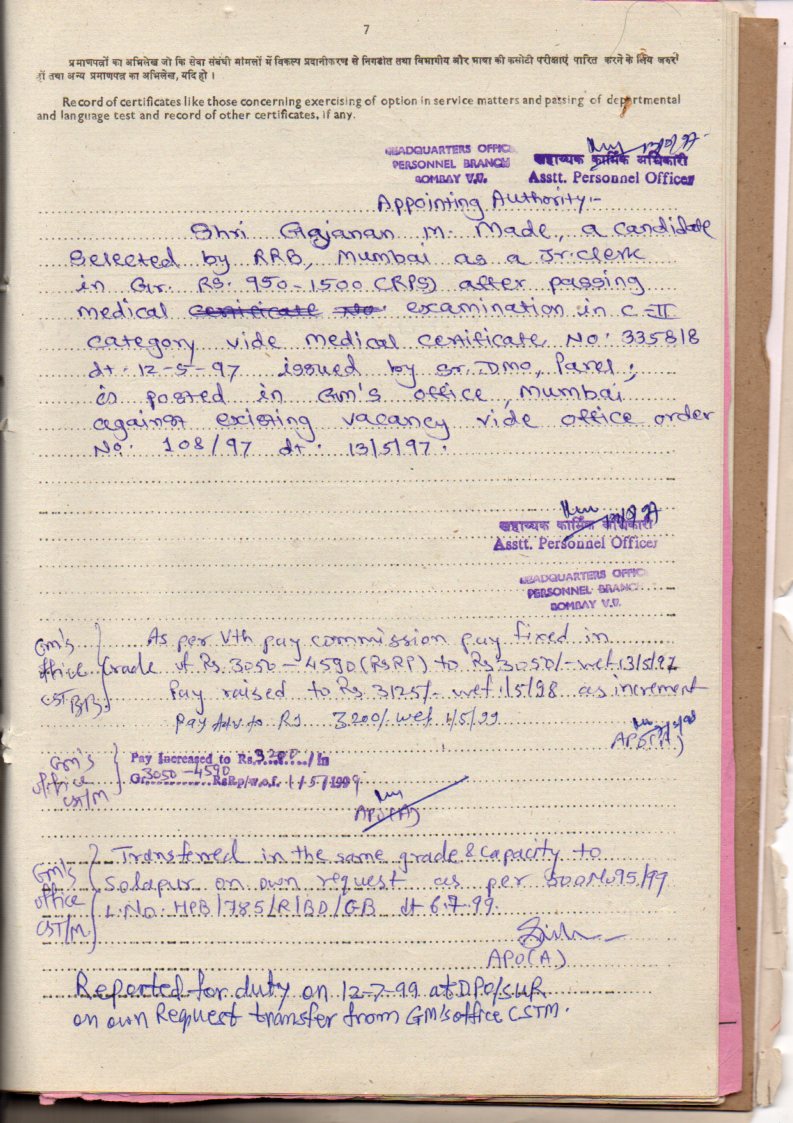 7
प्रमाणपत्रों का अभिलेख जो कि सेवा संबंधी मामलों में विकल्प प्रदानीकरण से निगडांत तथा विभागीय और भाषा की कसोटी परीक्षाएं पारित करने के लिए जरुर
हों तथा अन्य प्रमाणपत्र का अभिलेख, यदि हो ।
Record of certificates like those concerning exercising of option in service matters and passing of departmental
and language test and record of other certificates, if any.
HEADQUARTERS OFFIC
PERSONNEL BRANCH
BOMBAY V.T.
सहाय्यक कार्मिक अधिकारी
Asstt. Personnel Officer
Appointing Authority:-
Shri Gajanan M. Made, a candidate
selected by RRB, Mumbai as a Jr. clerk
in Gr. Rs. 950-1500 (RPS) after passing
medical certificate No. examination in C-II
category vide medical certificate No. 335818
dt. 12-5-97 issued by Sr. DMO, Parel;
is posted in GM's office, Mumbai
against existing vacancy vide office order
No. 108/97 dt. 13/5/97.
सहाय्यक कार्मिक अधिकारी
Asstt. Personnel Officer
HEADQUARTERS OFFIC
PERSONNEL BRANC
BOMBAY V.T.
GM's
office
As per Vth pay commission pay fixed in
Grade of Rs. 3050-4590 (RSRP) to Rs 3050/- wef 13/5/97
Pay raised to Rs 3125/- wef 1/5/98 as increment
Pay to Rs 3200/- wef 1/5/99
APO(A)
GM's
office
CST/M
Pay Increased to Rs. 3200/ In
Gr. 3050-4590 RsRp/w.e.f. 1/5/1999.
APO(A)
GM's
office
CST/M
Transferred in the same grade & capacity to
Solapur on own request as per SOO No 95/99
L. No. HPB/785/R/BD/GB dt 6.7.99.
APO(A)
Reported for duty on 12-7-99 at DPO/SUR
on own Request transfer from GM's office CSTM.